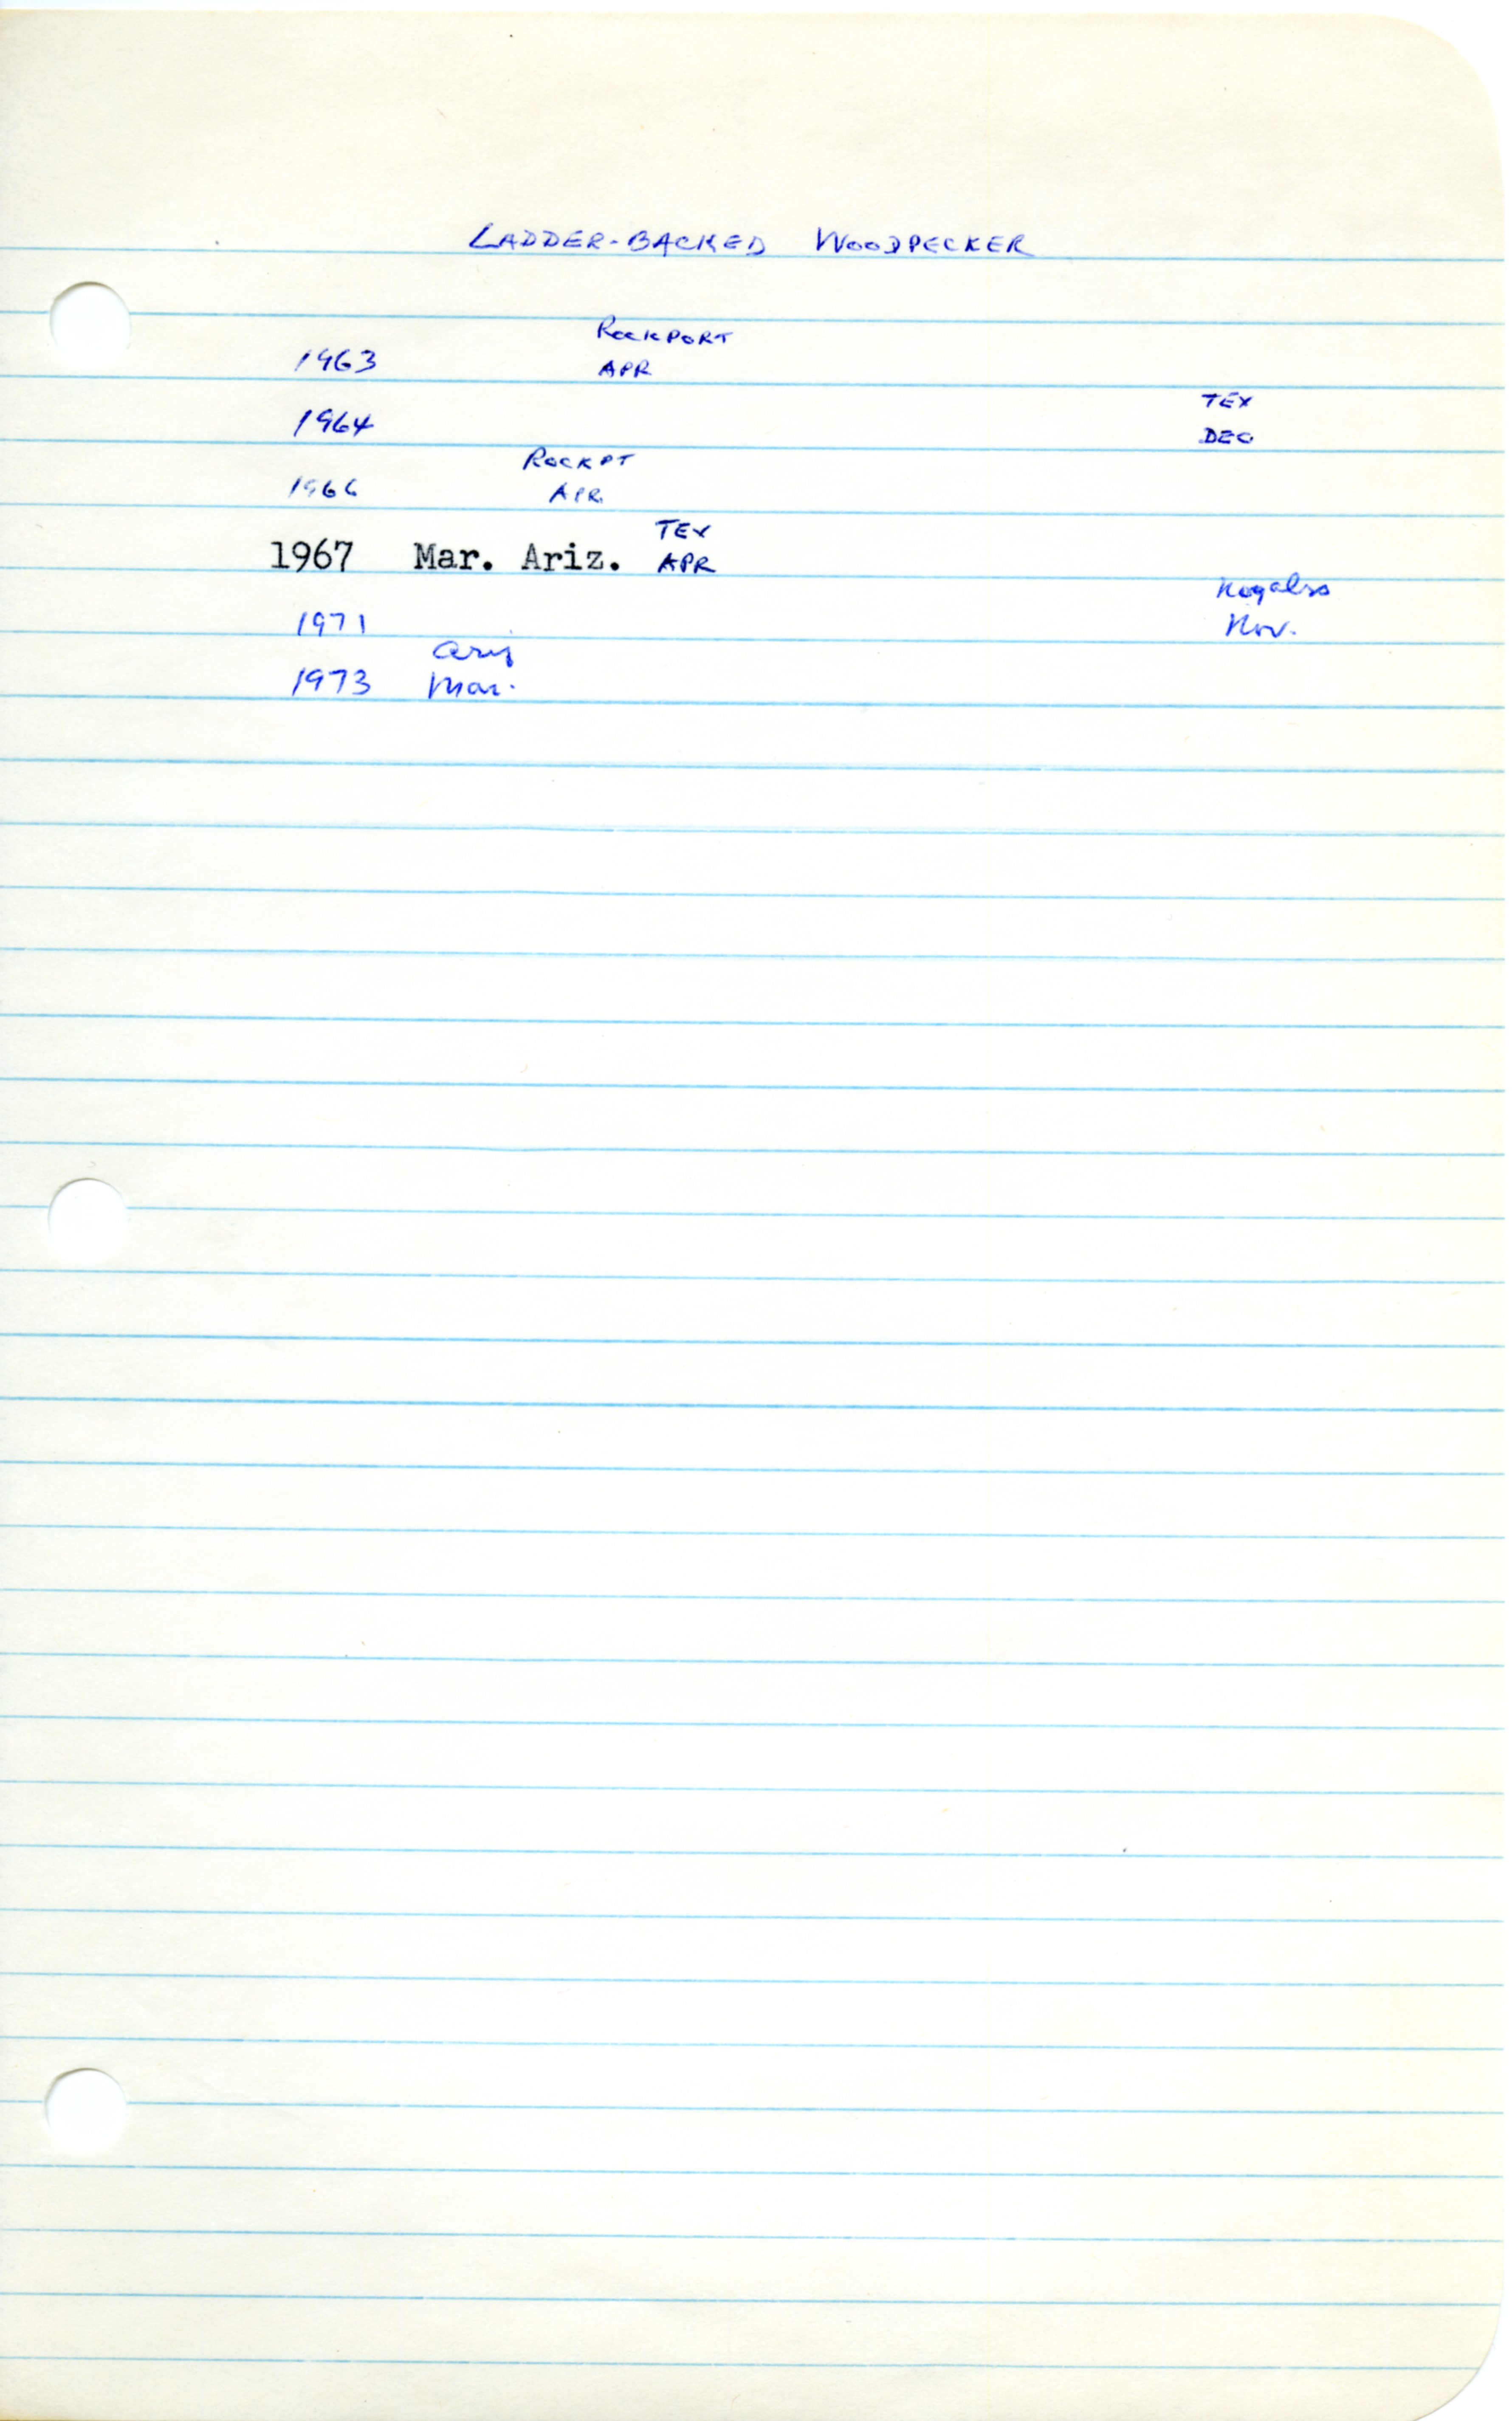 LADDER-BACKED WOODPECKER
ROCKPORT
1963 APR
TEX
1964 DEC
ROCKPT
1966 APR
TEX
1967 Mar. Ariz. APR
Nogales
1971 Nov.
Ariz
1973 Mar.